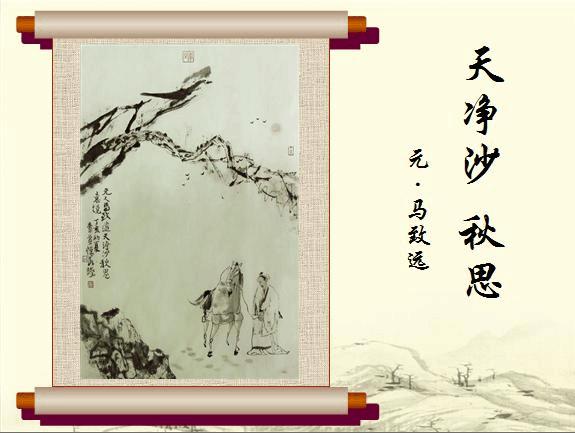 天净沙 秋思
元·马致远
元人马致远天净沙秋思